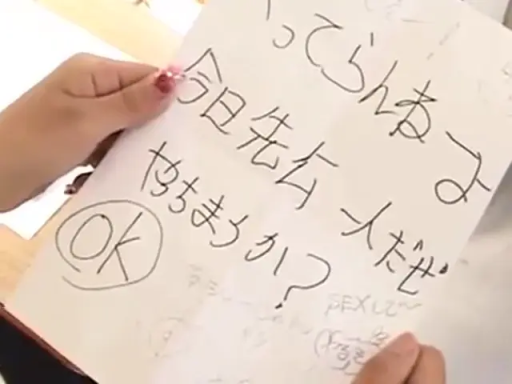 ってらんねよ
今日先公一人だぜ
やちまうか?
OK